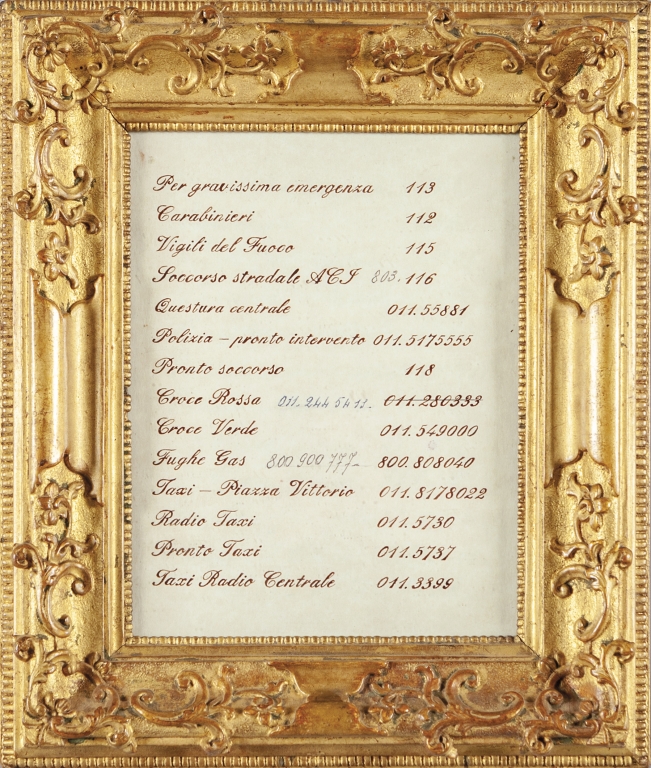 Per gravissima emergenza 113
Carabinieri 112
Vigili del Fuoco 115
Soccorso stradale ACI 803.116
Questura centrale 011.55881
Polizia – pronto intervento 011.5175555
Pronto soccorso 118
Croce Rossa 011.2445411- 011.280333
Croce Verde 011.549000
Fughe Gas 800.900777- 800.808040
Taxi – Piazza Vittorio 011.8178022
Radio Taxi 011.5730
Pronto Taxi 011.5737
Taxi Radio Centrale 011.3399